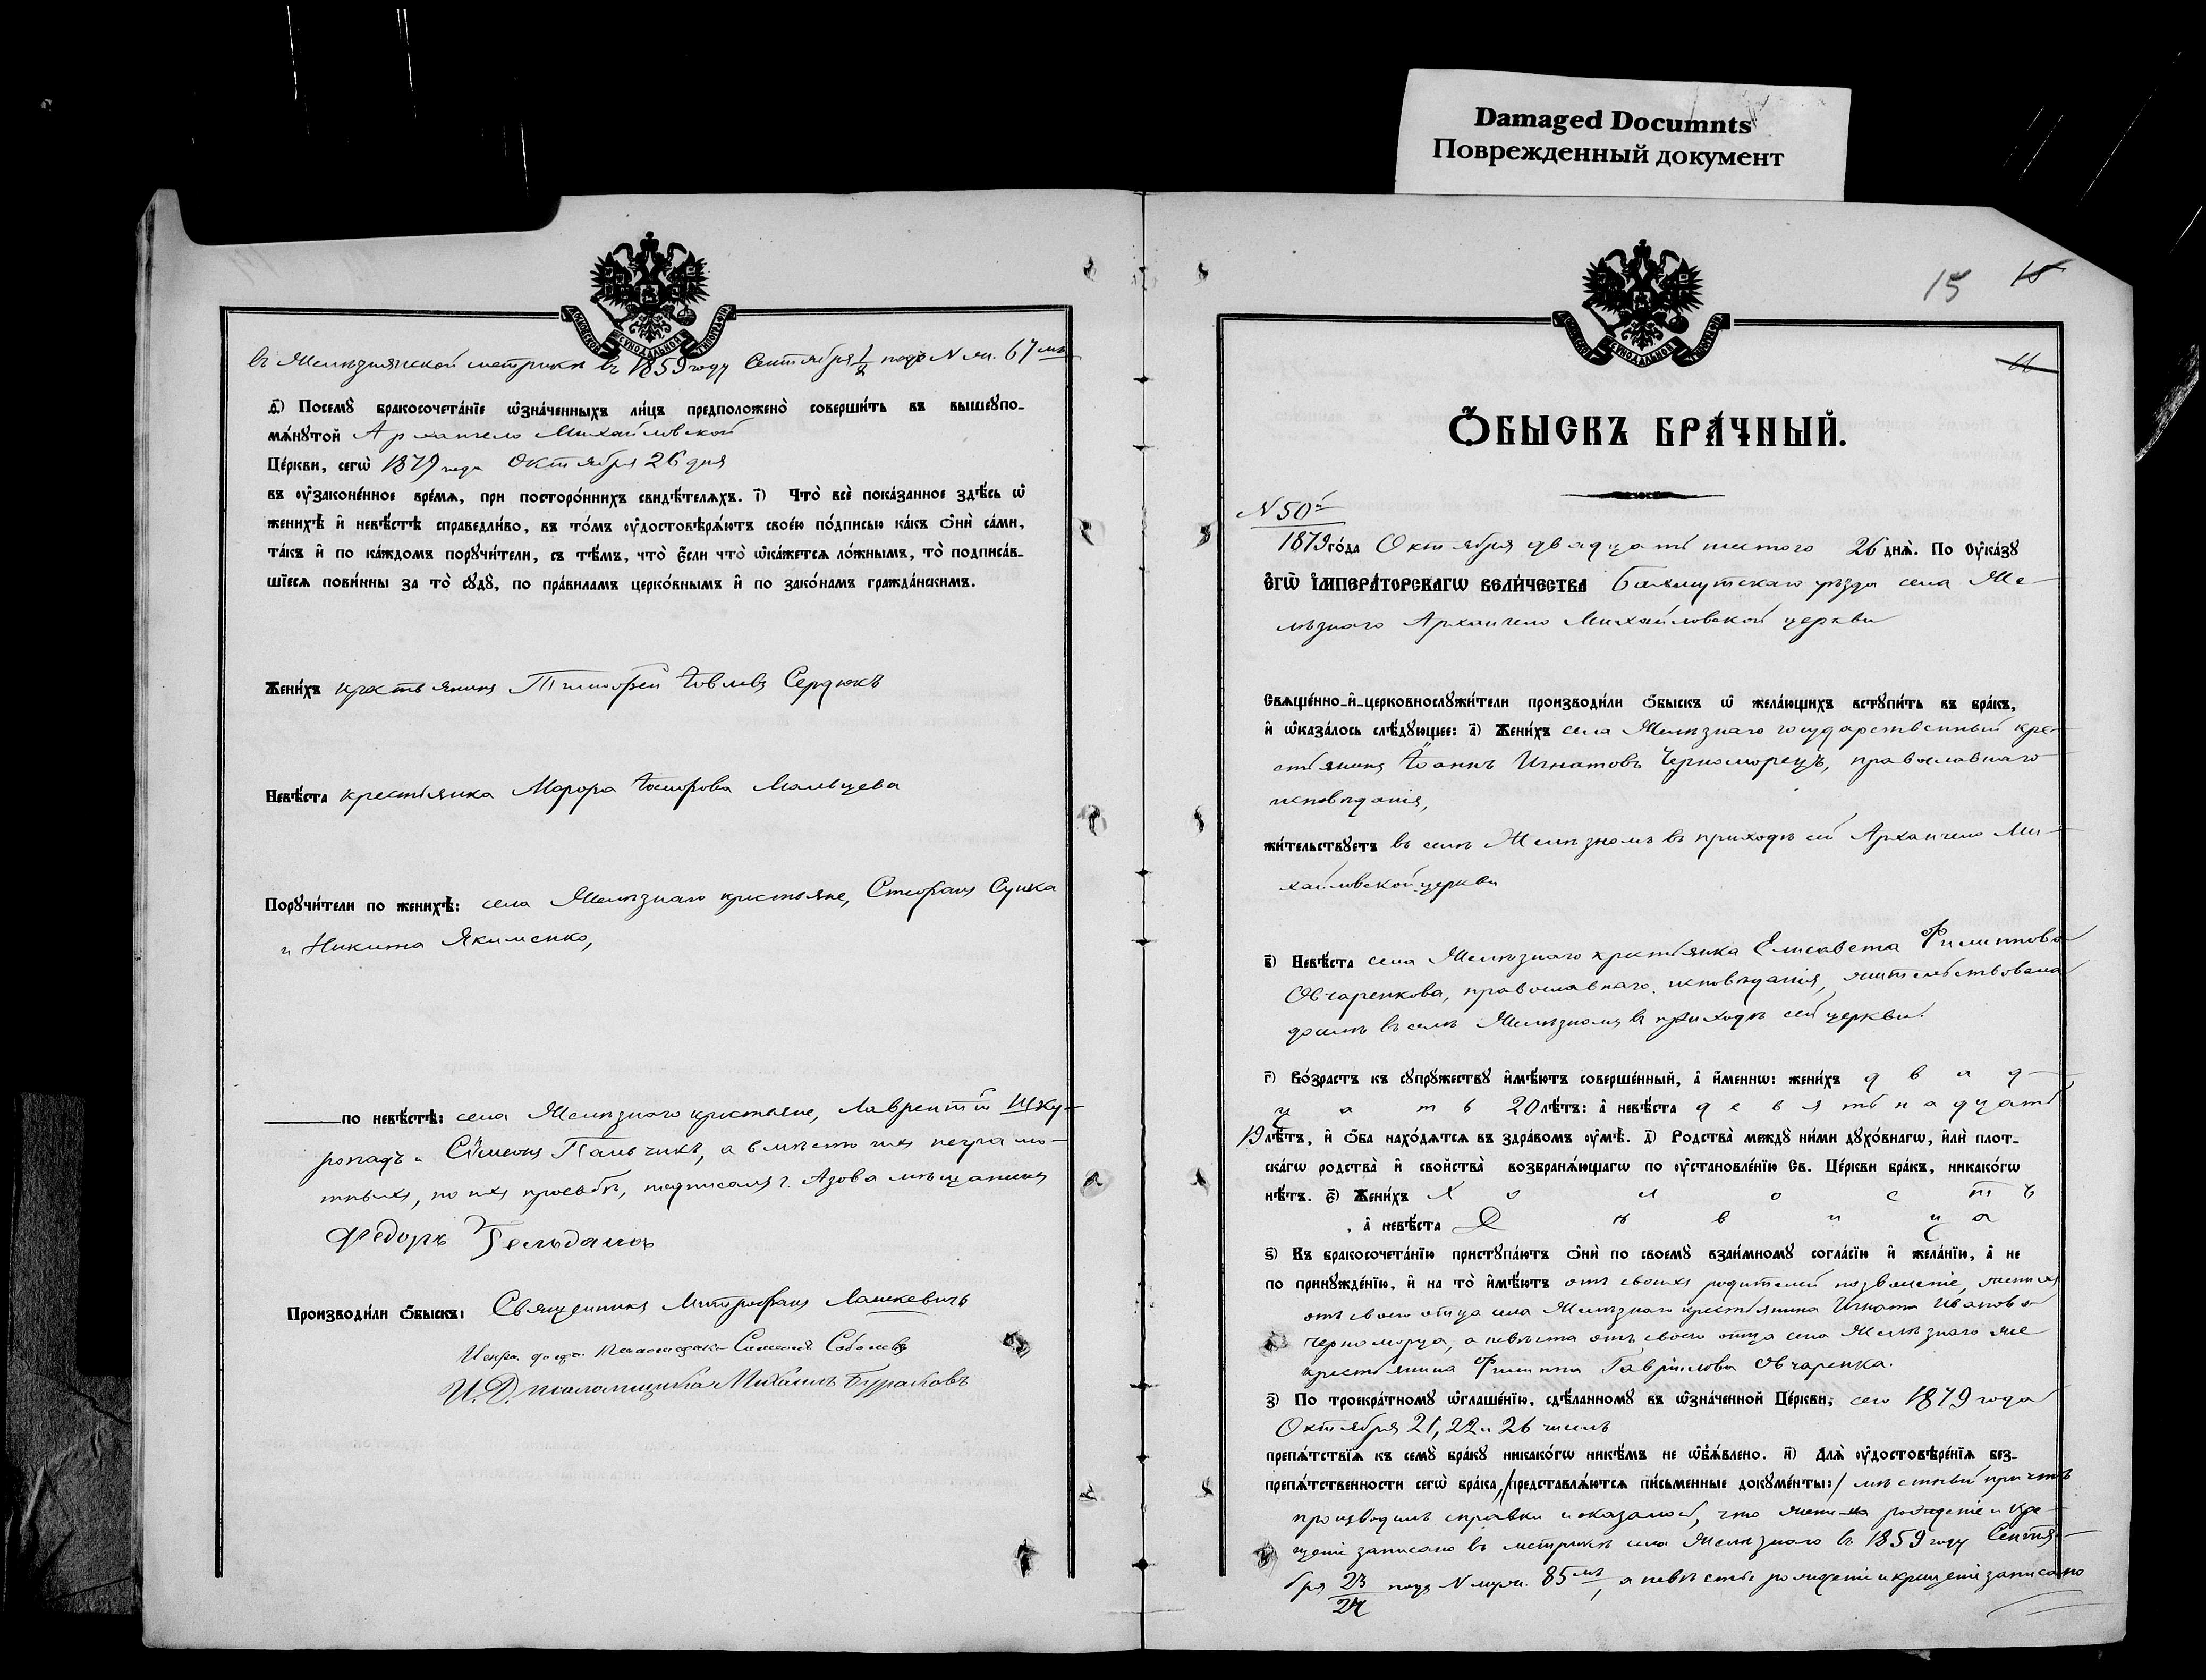 Damaged Documnts
Поврежденный документ
МОСКОВСКОЙ СѴНОДАЛЬНОЙ ТИПОГРАФІИ
въ Желѣзнянской метрикѣ въ 1859 году Сентября 1/2 подъ № жен. 67мъ
д҃і) Посемꙋ̀ бракосочета́нїе ѡ҆зна́ченныхъ ли́цъ предположено̀ соверши́ть въ вышеꙋпо-
мѧ́нꙋтой Архангело Михайловской
Це́ркви, сегѡ̀ 1879 года Октября 26 дня
въ ᲂу҆зако́ненное вре́мѧ, при посторо́ннихъ свидѣ́телѧхъ. і҃) Что̀ всѐ пока́занное здѣ́сь ѡ҆
женихѣ̀ и҆ невѣ́стѣ справедли́во, въ то́мъ ᲂу҆достовѣрѧ́ютъ своє́ю по́дписью ка́къ ѻ҆нѝ са́ми,
та́къ и҆ по ка́ждомъ порꙋчи́тели, съ тѣ́мъ, что̀ є҆́сли что̀ ѡ҆ка́жетсѧ ло́жнымъ, то̀ подписа́в-
шїесѧ пови́нны за то̀ сꙋдꙋ̀, по пра́виламъ церко́внымъ и҆ по зако́намъ гражда́нскимъ.
Жени́хъ крестьянинъ Тимофей Іовлевъ Сердюкъ
Невѣ́ста крестьянка Мавра Іосифова Мальцева
Порꙋчи́тели по женихѣ̀: села Желѣзнаго крестьяне, Стефанъ Супка
и Никита Якименко,
по невѣ́стѣ: села Желѣзнаго крестьяне, Лаврентій Шку-
ропадъ и Сѵмеонъ Пальчикъ, а вмѣсто ихъ неграмо-
тныхъ, по ихъ просьбѣ, подписался г. Азова мѣщанинъ
Федоръ
Производи́ли ѻ҆́быскъ: Священникъ Митрофанъ Лашкевичъ
Соболевъ
И. Д. псаломщика Михаилъ Бураковъ
15 15
МОСКОВСКОЙ СѴНОДАЛЬНОЙ ТИПОГРАФІИ
Ѻ҆́БЫСКЪ БРА́ЧНЫЙ.
№ 50й
1879 го́да Октября двадцать шестого 26 днѧ̀. По ᲂу҆ка́зꙋ
Є҆гѡ̀ І҆мпера́торскагѡ Вели́чества Бахмутскаго уѣзда села Же-
лѣзнаго Архангело Михайловской церкви
Свѧще́нно-и҆-церковнослꙋжи́тели производи́ли ѻ҆́быскъ ѡ҆ жела́ющихъ встꙋпи́ть въ бра́къ,
и҆ ѡ҆каза́лось слѣ́дꙋющее: а҃) Жени́хъ села Желѣзнаго государственный кре-
стьянинъ Іоаннъ Игнатовъ Черноморецъ, православнаго
исповѣданія,
жи́тельствꙋетъ въ селѣ Желѣзномъ въ приходѣ сей Архангело Ми-
хайловской церкви
в҃) Невѣ́ста села Желѣзнаго крестьянка Елисавета Филиппова
Овчаренкова, православнаго исповѣданія, жительствовала
домъ въ селѣ Желѣзномъ въ приходѣ сей церкви.
г҃) Во́зрастъ къ сꙋпрꙋ́жествꙋ и҆мѣ́ютъ соверше́нный, а҆ и҆́меннѡ: жени́хъ двад-
цать 20 лѣ́тъ: а҆ невѣ́ста девятьнадцать
19 лѣ́тъ, и҆ ѻ҆́ба нахо́дѧтсѧ въ здра́вомъ ᲂу҆мѣ̀. д҃) Родства̀ междꙋ̀ ни́ми дꙋхо́внагѡ, и҆лѝ плот-
ска́гѡ родства̀ и҆ свойства̀ возбранѧ́ющагѡ по ᲂу҆становле́нїю Св. Це́ркви бра́къ, никако́гѡ
нѣ́тъ. є҃) Жени́хъ Холостъ
, а҆ невѣ́ста Дѣвица
ѕ҃) Къ бракосочета́нїю пристꙋпа́ютъ ѻ҆нѝ по своємꙋ̀ взаи́мномꙋ согла́сїю и҆ жела́нїю, а҆ не
по принꙋжде́нїю, и҆ на то̀ и҆мѣ́ютъ отъ своихъ родителей позволеніе, женихъ
отъ своего отца села Желѣзнаго крестьянина Игната Иванова
Черноморца, а невѣста отъ своего отца села Желѣзнаго же
крестьянина Филиппа Гаврилова Овчаренка.
з҃) По троекра́тномꙋ ѡ҆глаше́нїю, сдѣ́ланномꙋ въ ѡ҆зна́ченной Це́ркви, сего 1879 года
Октября 21, 22 и 26 чиселъ
препѧ́тствїѧ къ семꙋ̀ бра́кꙋ никако́гѡ никѣ́мъ не ѡ҆б̾ѧ́влено. и҃) Длѧ̀ ᲂу҆достовѣре́нїѧ без-
препѧ́тственности сегѡ̀ бра́ка, /представлѧ́ютсѧ пи́сьменные докꙋме́нты:/ мѣстный причтъ
производилъ справки и оказалось, что жениха рожденіе и кре-
щеніе записано въ метрикѣ села Желѣзнаго въ 1859 году Сентя-
бря 23/24 подъ № муж. 85мъ, а невѣсты рожденіе и крещеніе записано